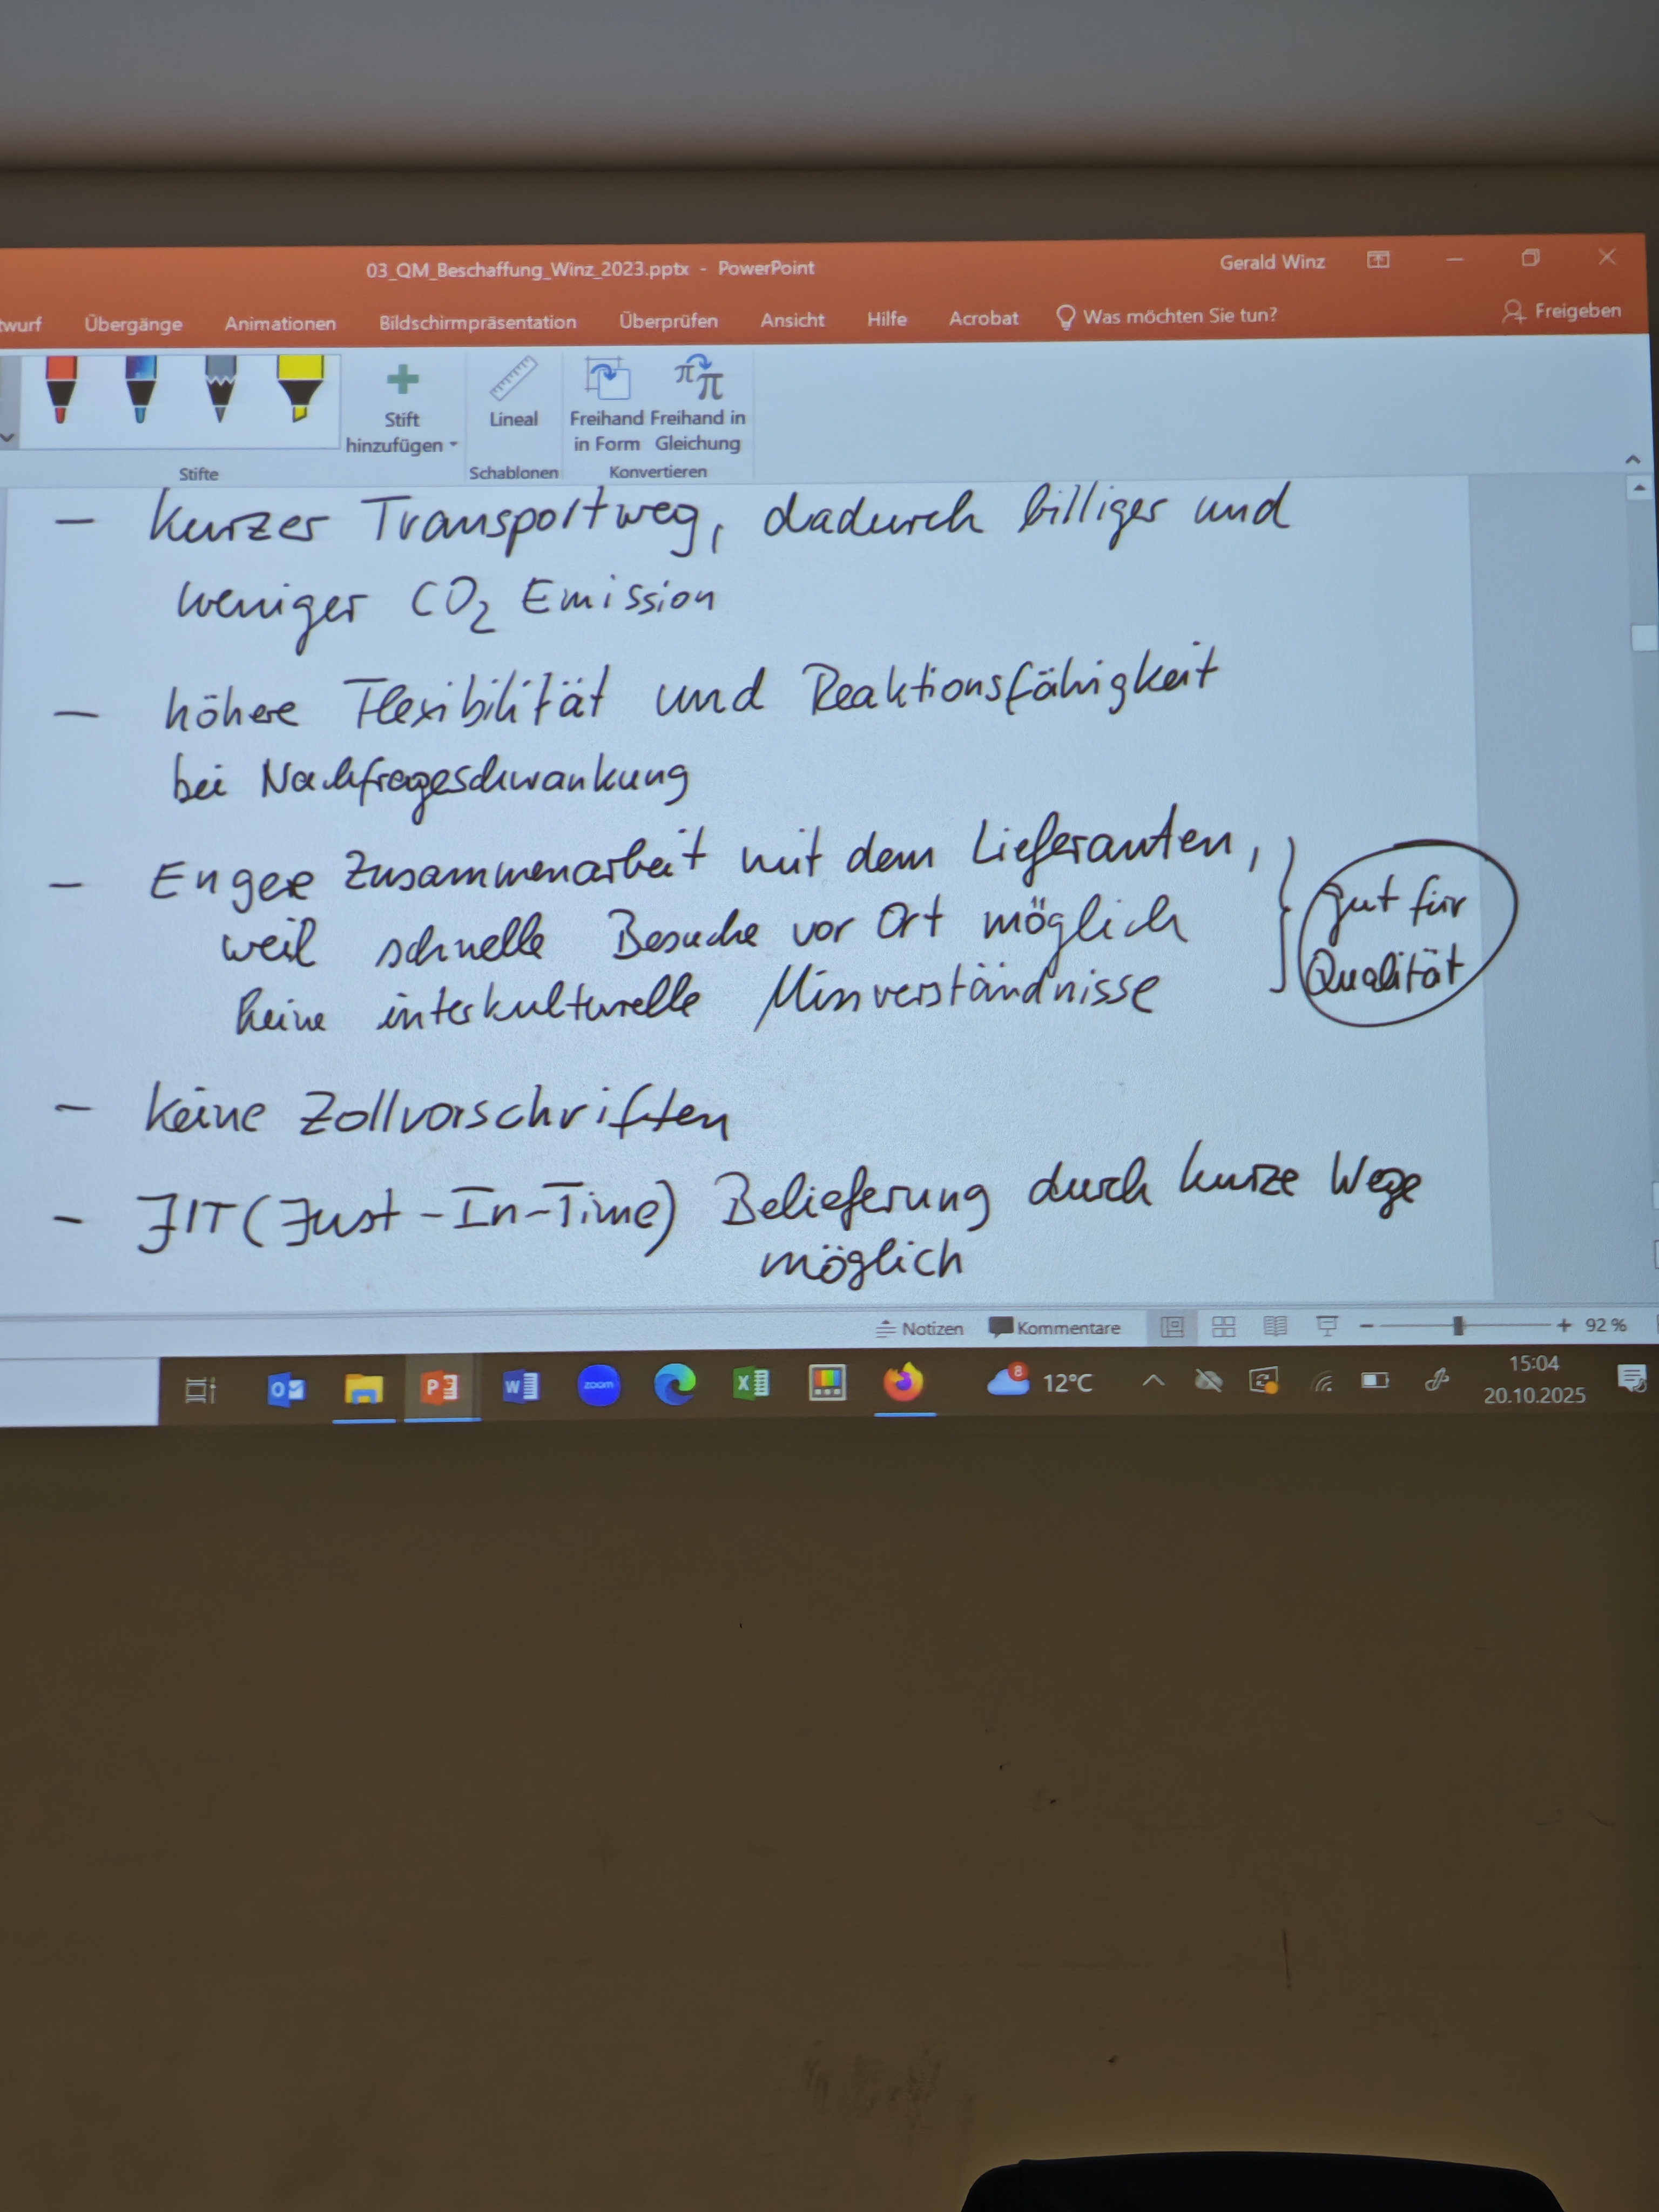 03_QM_Beschaffung_Winz_2023.pptx - PowerPoint
Gerald Winz
twurf Übergänge Animationen Bildschirmpräsentation Überprüfen Ansicht Hilfe Acrobat Was möchten Sie tun? Freigeben
Stift hinzufügen
Lineal
Freihand in Form
Freihand in Gleichung
Stifte
Schablonen
Konvertieren
- kurzer Transportweg, dadurch billiger und
weniger CO2 Emission
- höhere Flexibilität und Reaktionsfähigkeit
bei Nachfrageschwankung
- Engere Zusammenarbeit mit dem Lieferanten,
weil schnelle Besuche vor Ort möglich
keine interkulturelle Missverständnisse
} gut für
Qualität
- keine Zollvorschriften
- JIT (Just-In-Time) Belieferung durch kurze Wege
möglich
Notizen Kommentare 92 %
zoom
8
12°C
15:04
20.10.2025